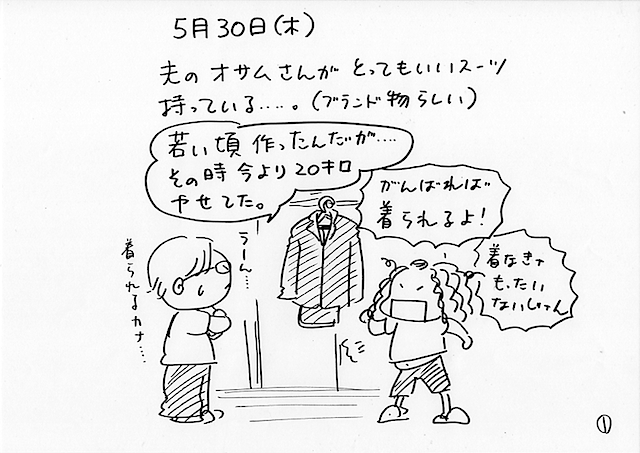 5月30日(木)
夫の オサムさんが とってもいいスーツ
持っている‥‥。(ブランド物らしい)
若い頃 作ったんだが‥‥
その時 今より 20キロ
やせてた。
がんばれば
着られるよ!
着なきゃ
もったい
ないじゃん
うーん‥‥
着られるカナ‥‥
①